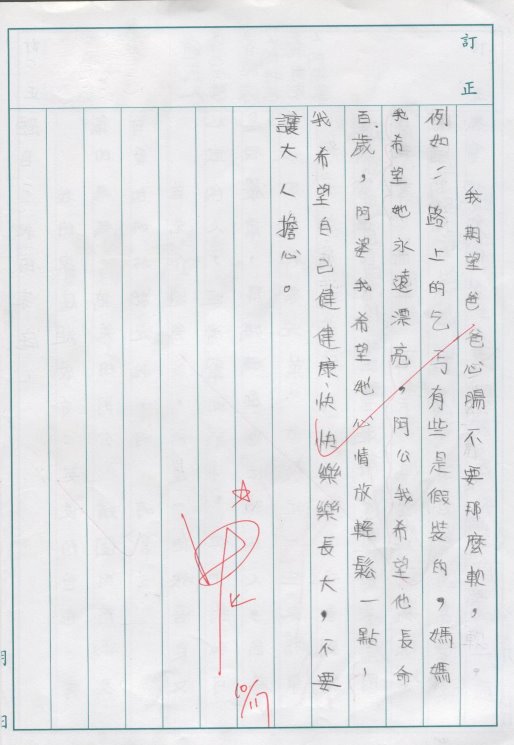 訂正
我期望爸爸心腸不要那麼軟，
例如：路上的乞丐有些是假裝的，媽媽
我希望她永遠漂亮，阿公我希望他長命
百歲，阿婆我希望她心情放輕鬆一點，
我希望自己健健康、快快樂樂長大，不要
讓大人擔心。
甲
10/17
月
日